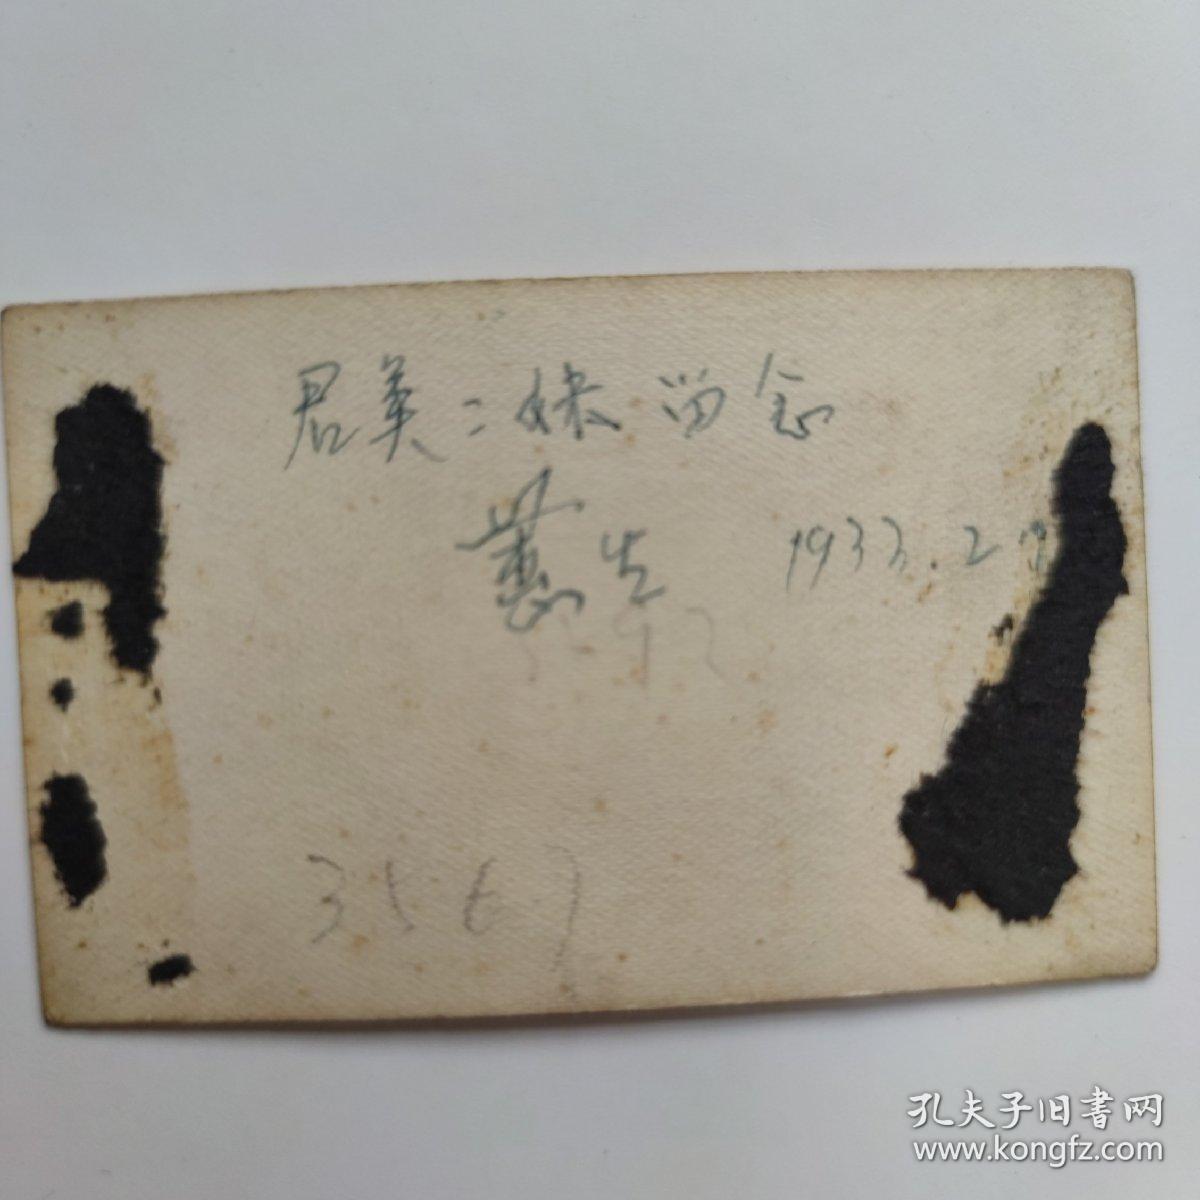 君英二妹留念
蕙生 1933.2.
92
3567
孔夫子旧书网
www.kongfz.com